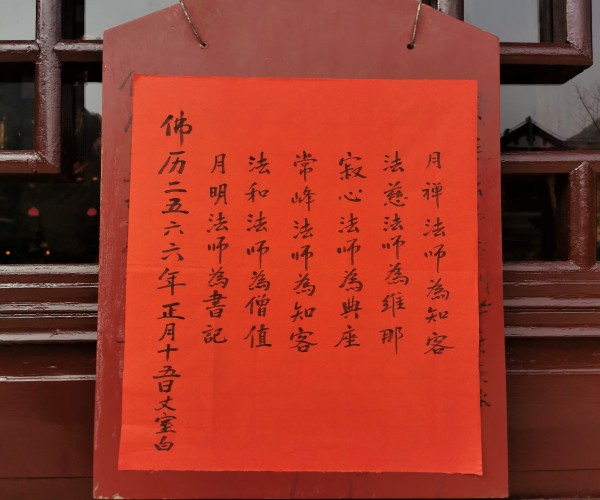 月禅法师為知客
法慈法师為維那
寂心法师為典座
常峰法师為知客
法和法师為僧值
月明法师為書記
佛历二五六六年正月十五日丈室白